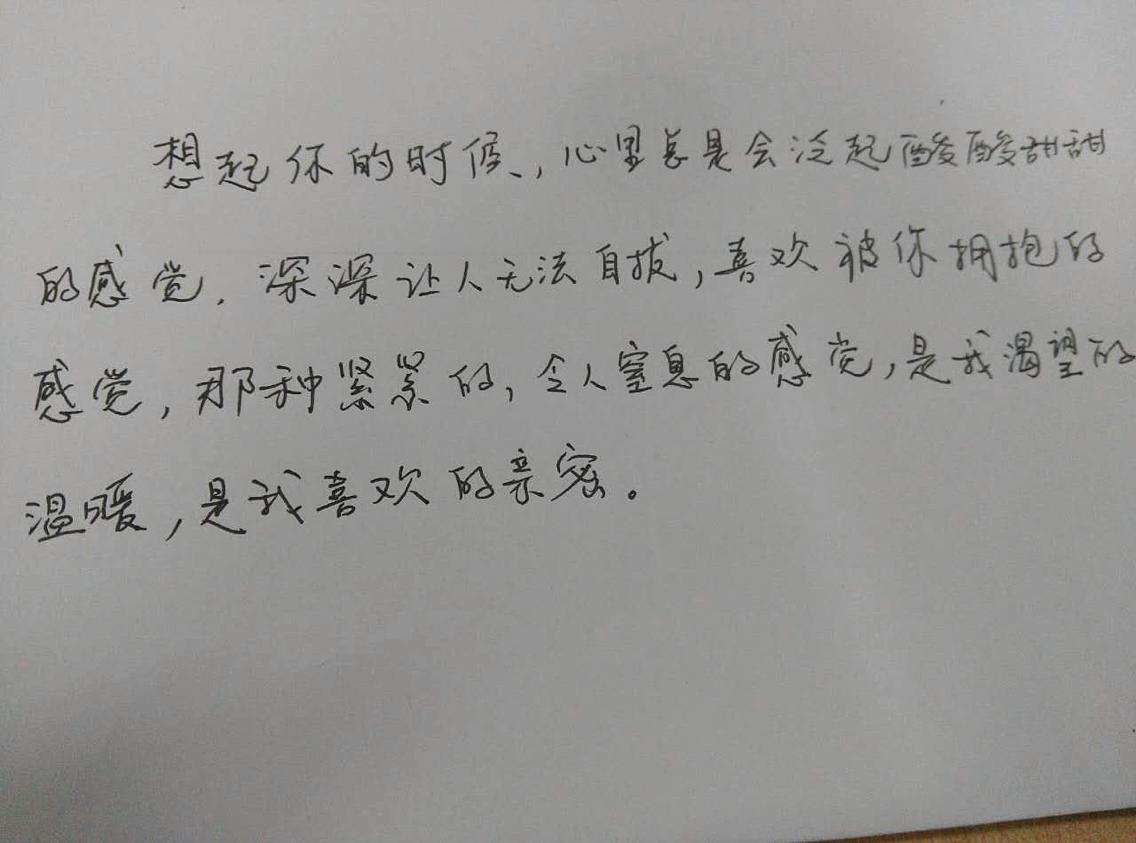 想起你的时候、,心里总是会泛起酸酸甜甜
的感觉.深深让人无法自拔,喜欢被你拥抱的
感觉,那种紧紧的,令人窒息的感觉,是我渴望的
温暖,是我喜欢的亲密。